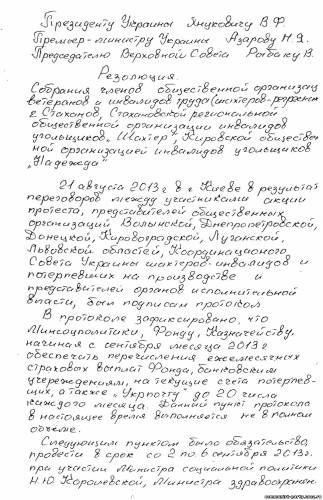 Президенту Украины Януковичу В.Ф
Премьер-министру Украины Азарову Н.Я.
Председателю Верховной Совета Рыбаку В.
Резолюция.
Собрания членов общественной организац
ветеранов и инвалидов труда (шахтеров-
г. Стаханов, Стахановской региональной
общественной организации инвалидов
угольщиков „Шахтер", Кировской обществен
ной организацией инвалидов угольщиков
„Надежда"
21 августа 2013 г в г. Киеве в результат
переговоров между участниками акции
протеста, представителей общественных
организаций Волынской, Днепропетровской,
Донецкой, Кировоградской, Луганской,
Львовской областей, Координационного
Совета Украины шахтеров-инвалидов и
потерпевших на производстве и
представителей органов исполнительной
власти, был подписан протокол.
В протоколе зафиксировано, что
Минсоцполитики, Фонду, Казначейству.
начиная с сентября месяца 2013 г
обеспечить перечисления ежемесячных
страховых выплат Фонда, банковским
учереждениям, на текущие счета потерпев-
ших, а также „Укрпочту" до 20 числа
каждого месяца. Данный пункт протокола
в настоящее время выполняется не в полном
объеме.
Следующим пунктом было обязательство,
провести в срок со 2 по 6 сентября 2013г.
при участии Министра социальной политики
Н.Ю. Королевской, Министра здравоохранен